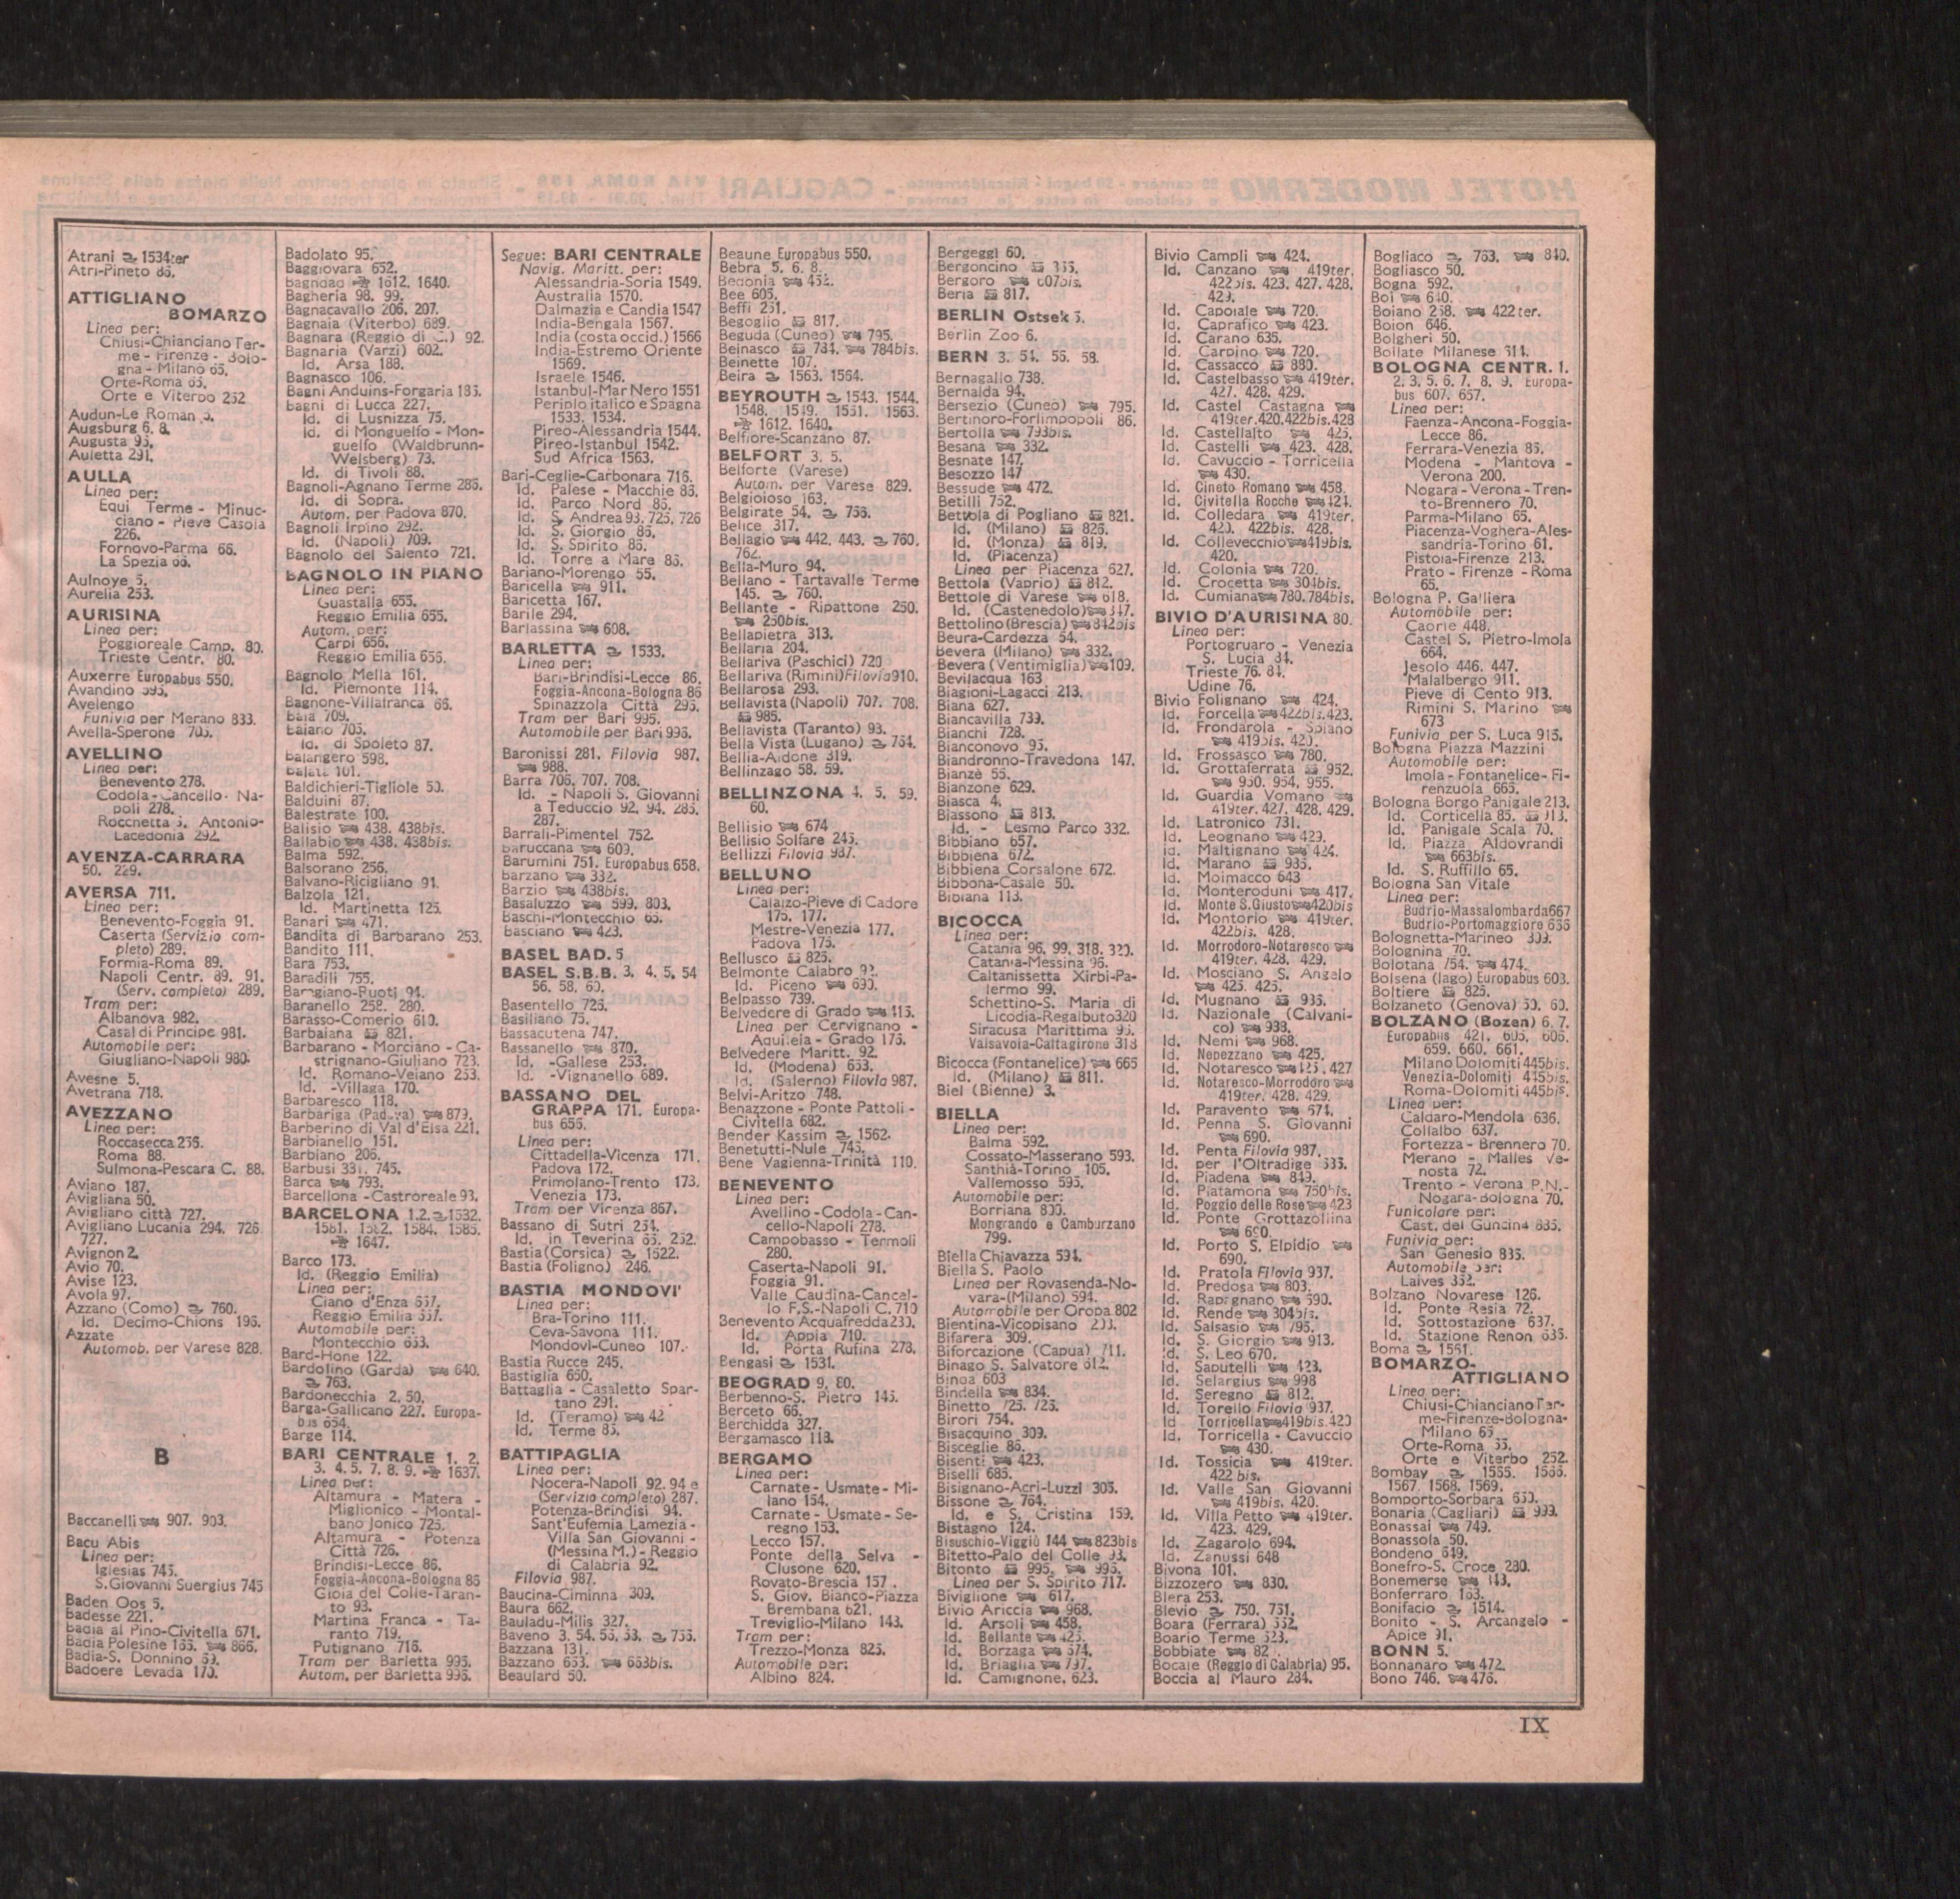 Atrani 1534ter
Atri-Pineto 86.
ATTIGLIANO
BOMARZO
Linea per:
Chiusi-Chianciano Ter-
me - Firenze - Bolo-
gna - Milano 65.
Orte-Roma 65.
Orte e Viterbo 252
Audun-Le Roman 5.
Augsburg 6. 8.
Augusta 95.
Auletta 291.
AULLA
Linea per:
Equi Terme - Minuc-
ciano - Pieve Casola
226.
Fornovo-Parma 66.
La Spezia 66.
Aulnoye 5.
Aurelia 253.
AURISINA
Linea per:
Poggioreale Camp. 80.
Trieste Centr. 80.
Auxerre Europabus 550.
Avandino 595.
Avelengo
Funivia per Merano 833.
Avella-Sperone 705.
AVELLINO
Linea per:
Benevento 278.
Codola-Cancello-Na-
poli 278.
Rocchetta S. Antonio-
Lacedonia 292.
AVENZA-CARRARA
50. 229.
AVERSA 711.
Linea per:
Benevento-Foggia 91.
Caserta (Servizio com-
pleto) 289.
Formia-Roma 89.
Napoli Centr. 89. 91.
(Serv. completo) 289.
Tram per:
Albanova 982.
Casal di Principe 981.
Automobile per:
Giugliano-Napoli 980.
Avesne 5.
Avetrana 718.
AVEZZANO
Linea per:
Roccasecca 256.
Roma 88.
Sulmona-Pescara C. 88.
Aviano 187.
Avigliana 50.
Avigliano città 727.
Avigliano Lucania 294. 726
727.
Avignon 2.
Avio 70.
Avise 123.
Avola 97.
Azzano (Como) 760.
Id. Decimo-Chions 195.
Azzate
Automob. per Varese 828.
B
Baccanelli 907. 903.
Bacu Abis
Linea per:
Iglesias 745.
S.Giovanni Suergius 745
Baden Oos 5.
Badesse 221.
Badia al Pino-Civitella 671.
Badia Polesine 166. 866.
Badia-S. Donnino 69.
Badoere Levada 170.
Badolato 95.
Baggiovara 652.
Bagdad 1612. 1640.
Bagheria 98. 99.
Bagnacavallo 206. 207.
Bagnaia (Viterbo) 689.
Bagnara (Reggio di C.) 92.
Bagnaria (Varzi) 602.
Id. Arsa 188.
Bagnasco 106.
Bagni Anduins-Forgaria 185.
Bagni di Lucca 227.
Id. di Lusnizza 75.
Id. di Monguelfo - Mon-
guelfo (Waldbrunn-
Welsberg) 73.
Id. di Tivoli 88.
Bagnoli-Agnano Terme 286.
Id. di Sopra.
Autom. per Padova 870.
Bagnoli Irpino 292.
Id. (Napoli) 709.
Bagnolo del Salento 721.
BAGNOLO IN PIANO
Linea per:
Guastalla 655.
Reggio Emilia 655.
Autom. per:
Carpi 656.
Reggio Emilia 656.
Bagnolo Mella 161.
Id. Piemonte 114.
Bagnone-Villafranca 66.
Baia 709.
Baiano 705.
Id. di Spoleto 87.
Balangero 598.
Balata 101.
Baldichieri-Tigliole 50.
Balduini 87.
Balestrate 100.
Balisio 438. 438bis.
Ballabio 438. 438bis.
Balma 592.
Balsorano 256.
Balvano-Ricigliano 91.
Balzola 121.
Id. Martinetta 125.
Banari 471.
Bandita di Barbarano 253.
Bandito 111.
Bara 753.
Baradili 755.
Baragiano-Ruoti 94.
Baranello 258. 280.
Barasso-Comerio 610.
Barbaiana 821.
Barbarano - Morciano - Ca-
strignano-Giuliano 723.
Id. Romano-Veiano 253.
Id. -Villaga 170.
Barbaresco 118.
Barbariga (Padova) 879.
Barberino di Val d'Elsa 221.
Barbianello 151.
Barbiano 206.
Barbusi 331. 745.
Barca 793.
Barcellona -Castroreale 93.
BARCELONA 1.2. 1532.
1581. 1582. 1584. 1585.
1647.
Barco 173.
Id. (Reggio Emilia)
Linea per:
Ciano d'Enza 657.
Reggio Emilia 657.
Automobile per:
Montecchio 653.
Bard-Hone 122.
Bardolino (Garda) 640.
763.
Bardonecchia 2, 50.
Barga-Gallicano 227. Europa-
bus 654.
Barge 114.
BARI CENTRALE 1. 2.
3. 4. 5. 7. 8. 9. 1637.
Linea per:
Altamura - Matera -
Miglionico - Montal-
bano Jonico 725.
Altamura - Potenza
Città 726.
Brindisi-Lecce 86.
Foggia-Ancona-Bologna 86
Gioia del Colle-Taran-
to 93.
Martina Franca - Ta-
ranto 719.
Putignano 716.
Tram per Barletta 995.
Autom. per Barletta 996.
Segue: BARI CENTRALE
Navig. Maritt. per:
Alessandria-Soria 1549.
Australia 1570.
Dalmazia e Candia 1547
India-Bengala 1567.
India (costa occid.) 1566
India-Estremo Oriente
1569.
Israele 1546.
Istanbul-Mar Nero 1551
Periplo italico e Spagna
1533. 1534.
Pireo-Alessandria 1544.
Pireo-Istanbul 1542.
Sud Africa 1563.
Bari-Ceglie-Carbonara 716.
Id. Palese - Macchie 86.
Id. Parco Nord 86.
Id. S. Andrea 93. 725. 726
Id. S. Giorgio 86.
Id. S. Spirito 86.
Id. Torre a Mare 86.
Bariano-Morengo 55.
Baricella 911.
Baricetta 167.
Barile 294.
Barlassina 608.
BARLETTA 1533.
Linea per:
Bari-Brindisi-Lecce 86.
Foggia-Ancona-Bologna 86
Spinazzola Città 295.
Tram per Bari 995.
Automobile per Bari 996.
Baronissi 281. Filovia 987.
988.
Barra 706. 707. 708.
Id. - Napoli S. Giovanni
a Teduccio 92. 94. 286.
287.
Barrali-Pimentel 752.
Baruccana 609.
Barumini 751. Europabus 658.
Barzano 332.
Barzio 438bis.
Basaluzzo 599. 803.
Baschi-Montecchio 65.
Basciano 423.
BASEL BAD. 5
BASEL S.B.B. 3. 4. 5. 54
56. 58. 60.
Basentello 726.
Basiliano 75.
Bassacutena 747.
Bassanello 870.
Id. -Gallese 253.
Id. -Vignanello 689.
BASSANO DEL
GRAPPA 171. Europa-
bus 656.
Linea per:
Cittadella-Vicenza 171.
Padova 172.
Primolano-Trento 173.
Venezia 173.
Tram per Vicenza 867.
Bassano di Sutri 254.
Id. in Teverina 65. 252.
Bastia (Corsica) 1522.
Bastia (Foligno) 246.
BASTIA MONDOVI'
Linea per:
Bra-Torino 111.
Ceva-Savona 111.
Mondovì-Cuneo 107.
Bastia Rucce 245.
Bastiglia 650.
Battaglia - Casaletto Spar-
tano 291.
Id. (Teramo) 42
Id. Terme 85.
BATTIPAGLIA
Linea per:
Nocera-Napoli 92. 94 e
(Servizio completo) 287.
Potenza-Brindisi 94.
Sant'Eufemia Lamezia -
Villa San Giovanni -
(Messina M.) - Reggio
di Calabria 92.
Filovia 987.
Baucina-Ciminna 309.
Baura 662.
Bauladu-Milis 327.
Baveno 3. 54. 56. 58. 756.
Bazzana 131.
Bazzano 663. 663bis.
Beaulard 50.
Beaune Europabus 550.
Bebra 5. 6. 8.
Bedonia 452.
Bee 605.
Beffi 251.
Begoglio 817.
Beguda (Cuneo) 795.
Beinasco 784. 784bis.
Beinette 107.
Beira 1563. 1564.
BEYROUTH 1543. 1544.
1548. 1549. 1551. 1563.
1612. 1640.
Belfiore-Scanzano 87.
BELFORT 3. 5.
Belforte (Varese)
Autom. per Varese 829.
Belgioioso 163.
Belgirate 54. 756.
Belice 317.
Bellagio 442. 443. 760.
762.
Bella-Muro 94.
Bellano - Tartavalle Terme
145. 760.
Bellante - Ripattone 250.
250bis.
Bellapietra 313.
Bellaria 204.
Bellariva (Peschici) 720
Bellariva (Rimini) Filovia 910.
Bellarosa 293.
Bellavista (Napoli) 707. 708.
985.
Bellavista (Taranto) 93.
Bella Vista (Lugano) 764.
Bellia-Aidone 319.
Bellinzago 58. 59.
BELLINZONA 4. 5. 59.
60.
Bellisio 674
Bellisio Solfare 245.
Bellizzi Filovia 987.
BELLUNO
Linea per:
Calalzo-Pieve di Cadore
175. 177.
Mestre-Venezia 177.
Padova 175.
Bellusco 825.
Belmonte Calabro 92.
Id. Piceno 690.
Belpasso 739.
Belvedere di Grado 415.
Linea per Cervignano -
Aquileia - Grado 175.
Belvedere Maritt. 92.
Id. (Modena) 653.
Id. (Salerno) Filovia 987.
Belvi-Aritzo 748.
Benazzone - Ponte Pattoli -
Civitella 682.
Bender Kassim 1562.
Benetutti-Nule 745.
Bene Vagienna-Trinità 110.
BENEVENTO
Linea per:
Avellino - Codola - Can-
cello-Napoli 278.
Campobasso - Termoli
280.
Caserta-Napoli 91.
Foggia 91.
Valle Caudina-Cancel-
lo F.S.-Napoli C. 710
Benevento Acquafredda 280.
Id. Appia 710.
Id. Porta Rufina 278.
Bengasi 1531.
BEOGRAD 9. 80.
Berbenno-S. Pietro 145.
Berceto 66.
Berchidda 327.
Bergamasco 118.
BERGAMO
Linea per:
Carnate - Usmate - Mi-
lano 154.
Carnate - Usmate - Se-
regno 153.
Lecco 157.
Ponte della Selva -
Clusone 620.
Rovato-Brescia 157.
S. Giov. Bianco-Piazza
Brembana 621.
Treviglio-Milano 143.
Tram per:
Trezzo-Monza 825.
Automobile per:
Albino 824.
Bergeggi 60.
Bergoncino 366.
Bergoro 607bis.
Beria 817.
BERLIN Ostsek 5.
Berlin Zoo 6.
BERN 3. 54. 56. 58.
Bernagallo 738.
Bernalda 94.
Bersezio (Cuneo) 795.
Bertinoro-Forlimpopoli 86.
Bertolla 793bis.
Besana 332.
Besnate 147.
Besozzo 147
Bessude 472.
Betilli 752.
Bettola di Pogliano 821.
Id. (Milano) 826.
Id. (Monza) 819.
Id. (Piacenza)
Linea per Piacenza 627.
Bettola (Vaprio) 812.
Bettole di Varese 618.
Id. (Castenedolo) 847.
Bettolino (Brescia) 842bis
Beura-Cardezza 54.
Bevera (Milano) 332.
Bevera (Ventimiglia) 109.
Bevilacqua 163
Biagioni-Lagacci 213.
Biana 627.
Biancavilla 739.
Bianchi 728.
Bianconovo 95.
Biandronno-Travedona 147.
Bianzè 55.
Bianzone 629.
Biasca 4.
Biassono 813.
Id. - Lesmo Parco 332.
Bibbiano 657.
Bibbiena 672.
Bibbiena Corsalone 672.
Bibbona-Casale 50.
Bibiana 113.
BICOCCA
Linea per:
Catania 96. 99. 318. 320.
Catania-Messina 96.
Caltanissetta Xirbi-Pa-
lermo 99.
Schettino-S. Maria di
Licodia-Regalbuto 320
Siracusa Marittima 96.
Valsavoia-Caltagirone 318
Bicocca (Fontanelice) 665
Id. (Milano) 811.
Biel (Bienne) 3.
BIELLA
Linea per:
Balma 592.
Cossato-Masserano 593.
Santhià-Torino 105.
Vallemosso 595.
Automobile per:
Borriana 800.
Mongrando e Camburzano
799.
Biella Chiavazza 594.
Biella S. Paolo
Linea per Rovasenda-No-
vara-(Milano) 594.
Automobile per Oropa 802
Bientina-Vicopisano 233.
Bifarera 309.
Biforcazione (Capua) 711.
Binago S. Salvatore 612.
Binoa 603
Bindella 834.
Binetto 725. 726.
Birori 754.
Bisacquino 309.
Bisceglie 86.
Bisenti 423.
Biselli 685.
Bisignano-Acri-Luzzi 305.
Bissone 764.
Id. e S. Cristina 159.
Bistagno 124.
Bisuschio-Viggiù 144 823bis
Bitetto-Palo del Colle 93.
Bitonto 995. 996.
Linea per S. Spirito 717.
Biviglione 617.
Bivio Ariccia 968.
Id. Arsoli 458.
Id. Bellante 425.
Id. Borzaga 674.
Id. Briaglia 797.
Id. Camignone. 623.
Bivio Campli 424.
Id. Canzano 419ter.
422bis. 423. 427. 428.
429.
Id. Capoiale 720.
Id. Caprafico 423.
Id. Carano 635.
Id. Carpino 720.
Id. Cassacco 880.
Id. Castelbasso 419ter.
427. 428. 429.
Id. Castel Castagna
419ter.420.422bis.428
Id. Castellalto 425.
Id. Castelli 423. 428.
Id. Cavuccio - Torricella
430.
Id. Cineto Romano 458.
Id. Civitella Rocche 424.
Id. Colledara 419ter.
420. 422bis. 428.
Id. Collevecchio 419bis.
420.
Id. Colonia 720.
Id. Crocetta 304bis.
Id. Cumiana 780.784bis.
BIVIO D'AURISINA 80.
Linea per:
Portogruaro - Venezia
S. Lucia 84.
Trieste 76. 84.
Udine 76.
Bivio Folignano 424.
Id. Forcella 422bis.423.
Id. Frondarola - Spiano
419bis. 420.
Id. Frossasco 780.
Id. Grottaferrata 952.
950. 954. 955.
Id. Guardia Vomano
419ter. 427. 428. 429.
Id. Latronico 731.
Id. Leognano 429.
Id. Maltignano 424.
Id. Marano 935.
Id. Moimacco 643
Id. Monteroduni 417.
Id. Monte S.Giusto 420bis
Id. Montorio 419ter.
422bis. 428.
Id. Morrodoro-Notaresco
419ter. 428. 429.
Id. Mosciano S. Angelo
425. 426.
Id. Mugnano 935.
Id. Nazionale (Calvani-
co) 938.
Id. Nemi 968.
Id. Nepezzano 425.
Id. Notaresco 425. 427
Id. Notaresco-Morrodoro
419ter. 428. 429.
Id. Paravento 674.
Id. Penna S. Giovanni
690.
Id. Penta Filovia 987.
Id. per l'Oltradige 635.
Id. Piadena 849.
Id. Piatamona 750bis.
Id. Poggio delle Rose 423
Id. Ponte Grottazolina
690.
Id. Porto S. Elpidio
690.
Id. Pratola Filovia 937.
Id. Predosa 803.
Id. Rapagnano 690.
Id. Rende 304bis.
Id. Salsasio 796.
Id. S. Giorgio 913.
Id. S. Leo 670.
Id. Saputelli 423.
Id. Selargius 998
Id. Seregno 812.
Id. Torello Filovia 937.
Id Torricella 419bis.420
Id. Torricella - Cavuccio
430.
Id. Tossicia 419ter.
422 bis.
Id. Valle San Giovanni
419bis. 420.
Id. Villa Petto 419ter.
423. 429.
Id. Zagarolo 694.
Id. Zanussi 648
Bivona 101.
Bizzozero 830.
Blera 253.
Blevio 750. 761.
Boara (Ferrara) 662.
Boario Terme 623.
Bobbiate 82
Bocale (Reggio di Calabria) 95.
Boccia al Mauro 284.
Bogliaco 763. 840.
Bogliasco 50.
Bogna 592.
Boi 640.
Boiano 258. 422ter.
Boion 646.
Bolgheri 50.
Bollate Milanese 614.
BOLOGNA CENTR. 1.
2. 3. 5. 6. 7. 8. 9. Europa-
bus 607. 657.
Linea per:
Faenza-Ancona-Foggia-
Lecce 86.
Ferrara-Venezia 85.
Modena - Mantova -
Verona 200.
Nogara-Verona-Tren-
to-Brennero 70.
Parma-Milano 65.
Piacenza-Voghera-Ales-
sandria-Torino 61.
Pistoia-Firenze 213.
Prato - Firenze - Roma
65.
Bologna P. Galliera
Automobile per:
Caorle 448.
Castel S. Pietro-Imola
664.
Jesolo 446. 447.
Malalbergo 911.
Pieve di Cento 913.
Rimini S. Marino
673
Funivia per S. Luca 915.
Bologna Piazza Mazzini
Automobile per:
Imola - Fontanelice - Fi-
renzuola 665.
Bologna Borgo Panigale 213.
Id. Corticella 85. 913.
Id. Panigale Scala 70.
Id. Piazza Aldovrandi
663bis.
Id. S. Ruffillo 65.
Bologna San Vitale
Linea per:
Budrio-Massalombarda 667
Budrio-Portomaggiore 666
Bolognetta-Marineo 309.
Bolognina 70.
Bolotana 754. 474.
Bolsena (lago) Europabus 603.
Boltiere 825.
Bolzaneto (Genova) 50. 60.
BOLZANO (Bozen) 6. 7.
Europabus 421. 605. 606.
659. 660. 661.
Milano Dolomiti 445bis.
Venezia-Dolomiti 445bis.
Roma-Dolomiti 445bis.
Linea per:
Caldaro-Mendola 636.
Collalbo 637.
Fortezza - Brennero 70.
Merano - Malles Ve-
nosta 72.
Trento - Verona P.N.-
Nogara-Bologna 70.
Funicolare per:
Cast. del Guncina 835.
Funivia per:
San Genesio 835.
Automobile per:
Laives 352.
Bolzano Novarese 126.
Id. Ponte Resia 72.
Id. Sottostazione 637.
Id. Stazione Renon 636.
Boma 1561.
BOMARZO-
ATTIGLIANO
Linea per:
Chiusi-Chianciano Ter-
me-Firenze-Bologna-
Milano 65
Orte-Roma 65.
Orte e Viterbo 252.
Bombay 1565. 1566.
1567. 1568. 1569.
Bomporto-Sorbara 650.
Bonaria (Cagliari) 999.
Bonassai 749.
Bonassola 50.
Bondeno 649.
Bonefro-S. Croce 280.
Bonemerse 843.
Bonferraro 163.
Bonifacio 1514.
Bonito - S. Arcangelo -
Apice 91.
BONN 5.
Bonnanaro 472.
Bono 746. 476.
IX